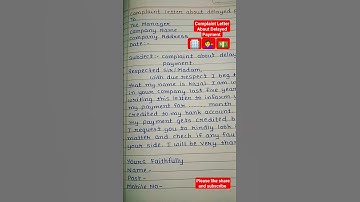 Complaint letter about delayed
To
The Manager
Company Name
Company Address
Date:-
Subject:- Complaint about delay
payment
Respected Sir/Madam,
With due respect I beg t
that my name is Kajal. I am w
in your company last five year
writing this letter to inform y
my payment for ........ month
credited to my bank account.
my payment gets credited b
I request you to kindly look
matter and check if any fau
your side. I will be very than
Yours Faithfully
Name-
Post-
Mobile No-
Complaint Letter
About Delayed
Payment
Please like share
and subscribe